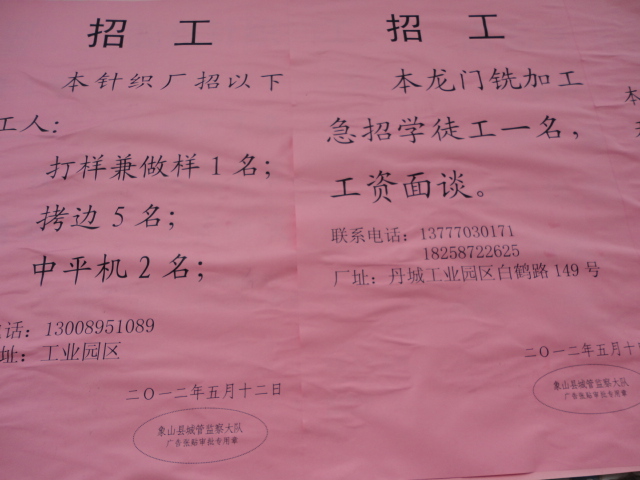 招 工
本针织厂招以下
工人：
打样兼做样 1 名；
拷边 5 名；
中平机 2 名；
电话：13008951089
址：工业园区
二〇一二年五月十二日
象山县城管监察大队
广告张贴审批专用章
招 工
本龙门铣加工
急招学徒工一名，
工资面谈。
联系电话：13777030171
18258722625
厂址：丹城工业园区白鹤路 149 号
二〇一二年五月十
象山县城管监察大队
广告张贴审批专用章
本